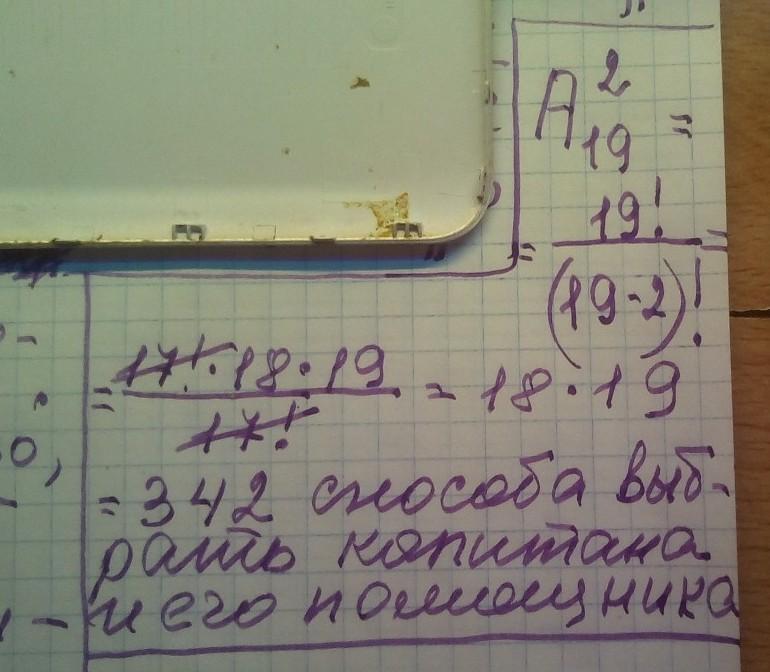 A²₁₉ =
= 19! / (19-2)! =
= 17!·18·19 / 17! = 18·19
= 342 способа выб-
рать капитана
и его помощника